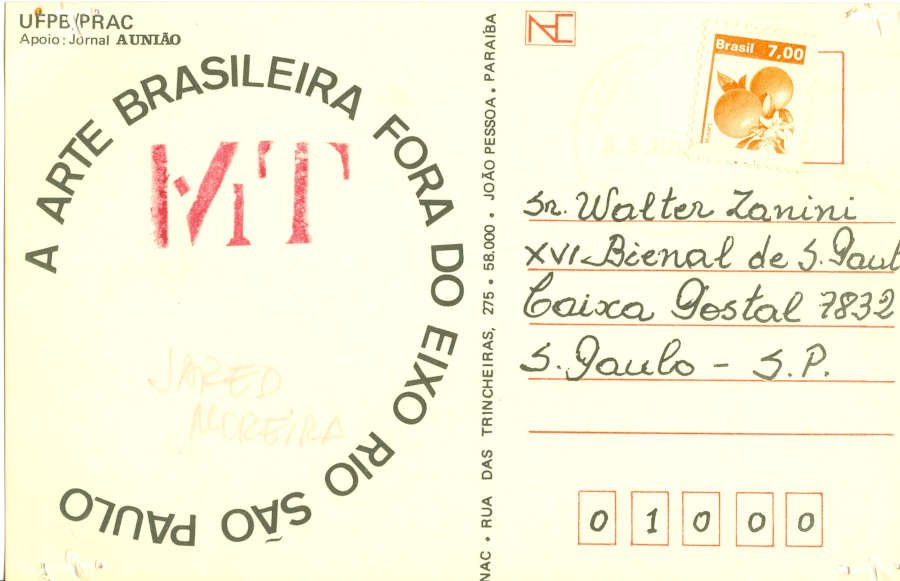 UFPB/PRAC
Apoio: Jornal A UNIÃO
A ARTE BRASILEIRA FORA DO EIXO RIO SÃO PAULO
MT
JARED
MOREIRA
NAC • RUA DAS TRINCHEIRAS, 275 • 58.000 • JOÃO PESSOA • PARAÍBA
NAC
Brasil 7,00
Sr. Walter Zanini
XVI Bienal de S. Paul
Caixa Postal 7832
S. Paulo - S.P.
0 1 0 0 0